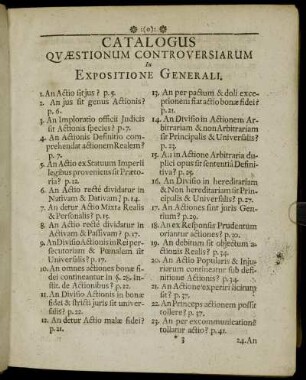 CATALOGUS
QVÆSTIONUM CONTROVERSIARUM
In
EXPOSITIONE GENERALI.
1. An Actio sit jus? p. 5.
2. An jus sit genus Actionis?
p. 6.
3. An Imploratio officii Judicis
sit Actionis species? p. 7.
4. An Actionis Definitio com-
prehendat actionem Realem?
p. 7.
5. An Actio ex Statuum Imperii
legibus proveniens sit Præto-
ria? p. 12.
6. An Actio rectè dividatur in
Nativam & Dativam? p. 14.
7. An detur Actio Mixta Realis
& Personalis? p. 15.
8. An Actio rectè dividatur in
Activam & Passivam? p. 17.
9. An Divisio Actionis in Rei per-
secutoriam & Poenalem sit
Universalis? p. 17.
10. An omnes actiones bonæ fi-
dei contineantur in §. 28. In-
stit. de Actionibus? p. 12.
11. An Divisio Actionis in bonæ
fidei & stricti juris sit univer-
salis? p. 22.
12. An detur Actio malæ fidei?
p. 21.
13. An per pactum & doli exce-
ptionem fiat actio bonæ fidei?
p. 21.
14. An Divisio in Actionem Ar-
bitrariam & non Arbitrariam
sit Principalis & Universalis?
p. 22.
15. An in Actione Arbitraria du-
plici opus sit sententiâ Defini-
tiva? p. 23.
16. An Divisio in hereditariam
& Non hereditariam sit Prin-
cipalis & Universalis? p. 27.
17. An Actiones sint juris Gen-
tium? p. 29.
18. An ex Responsis Prudentum
oriantur actiones? p. 30.
19. An debitum sit objectum a-
ctionis Realis? p. 34.
20. An Actio Popularis & Inju-
riarum contineatur sub defi-
nitione Actionis? p. 34.
21. An Actione experiri àcirum
sit? p. 37.
22. An Princeps actionem possit
tollere? p. 37.
23. An per excommunicatione
tollatur actio? p. 41.
24. An